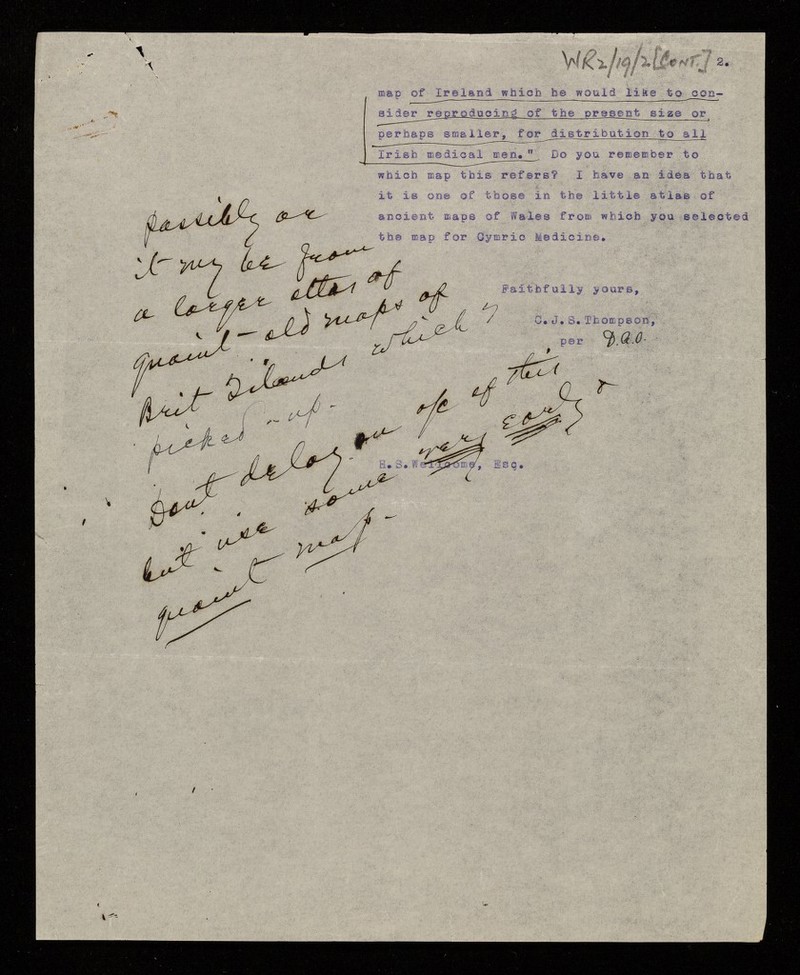 WR2/19/2 [CONT.] 2.
map of Ireland which he would like to con-
sider reproducing of the present size or
perhaps smaller, for distribution to all
Irish medical men." Do you remember to
which map this refers? I have an idea that
it is one of those in the little atlas of
ancient maps of Wales from which you selected
the map for Cymric Medicine.
Faithfully yours,
C.J.S.Thompson,
per D.A.O.
H.S.Wellcome, Esq.
possibly or
it my be from
a larger atlas of
quaint - old maps of
Brit Islands which I
picked - up -
Dont delay on a/c of this
but use some very early &
quaint map -